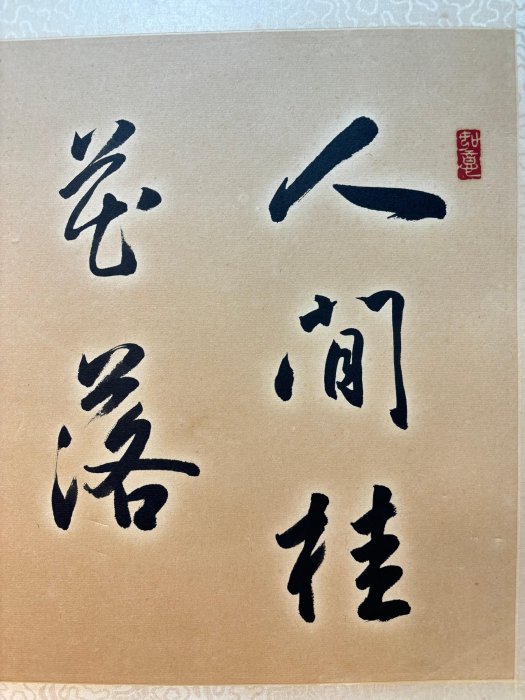 人間桂
花落